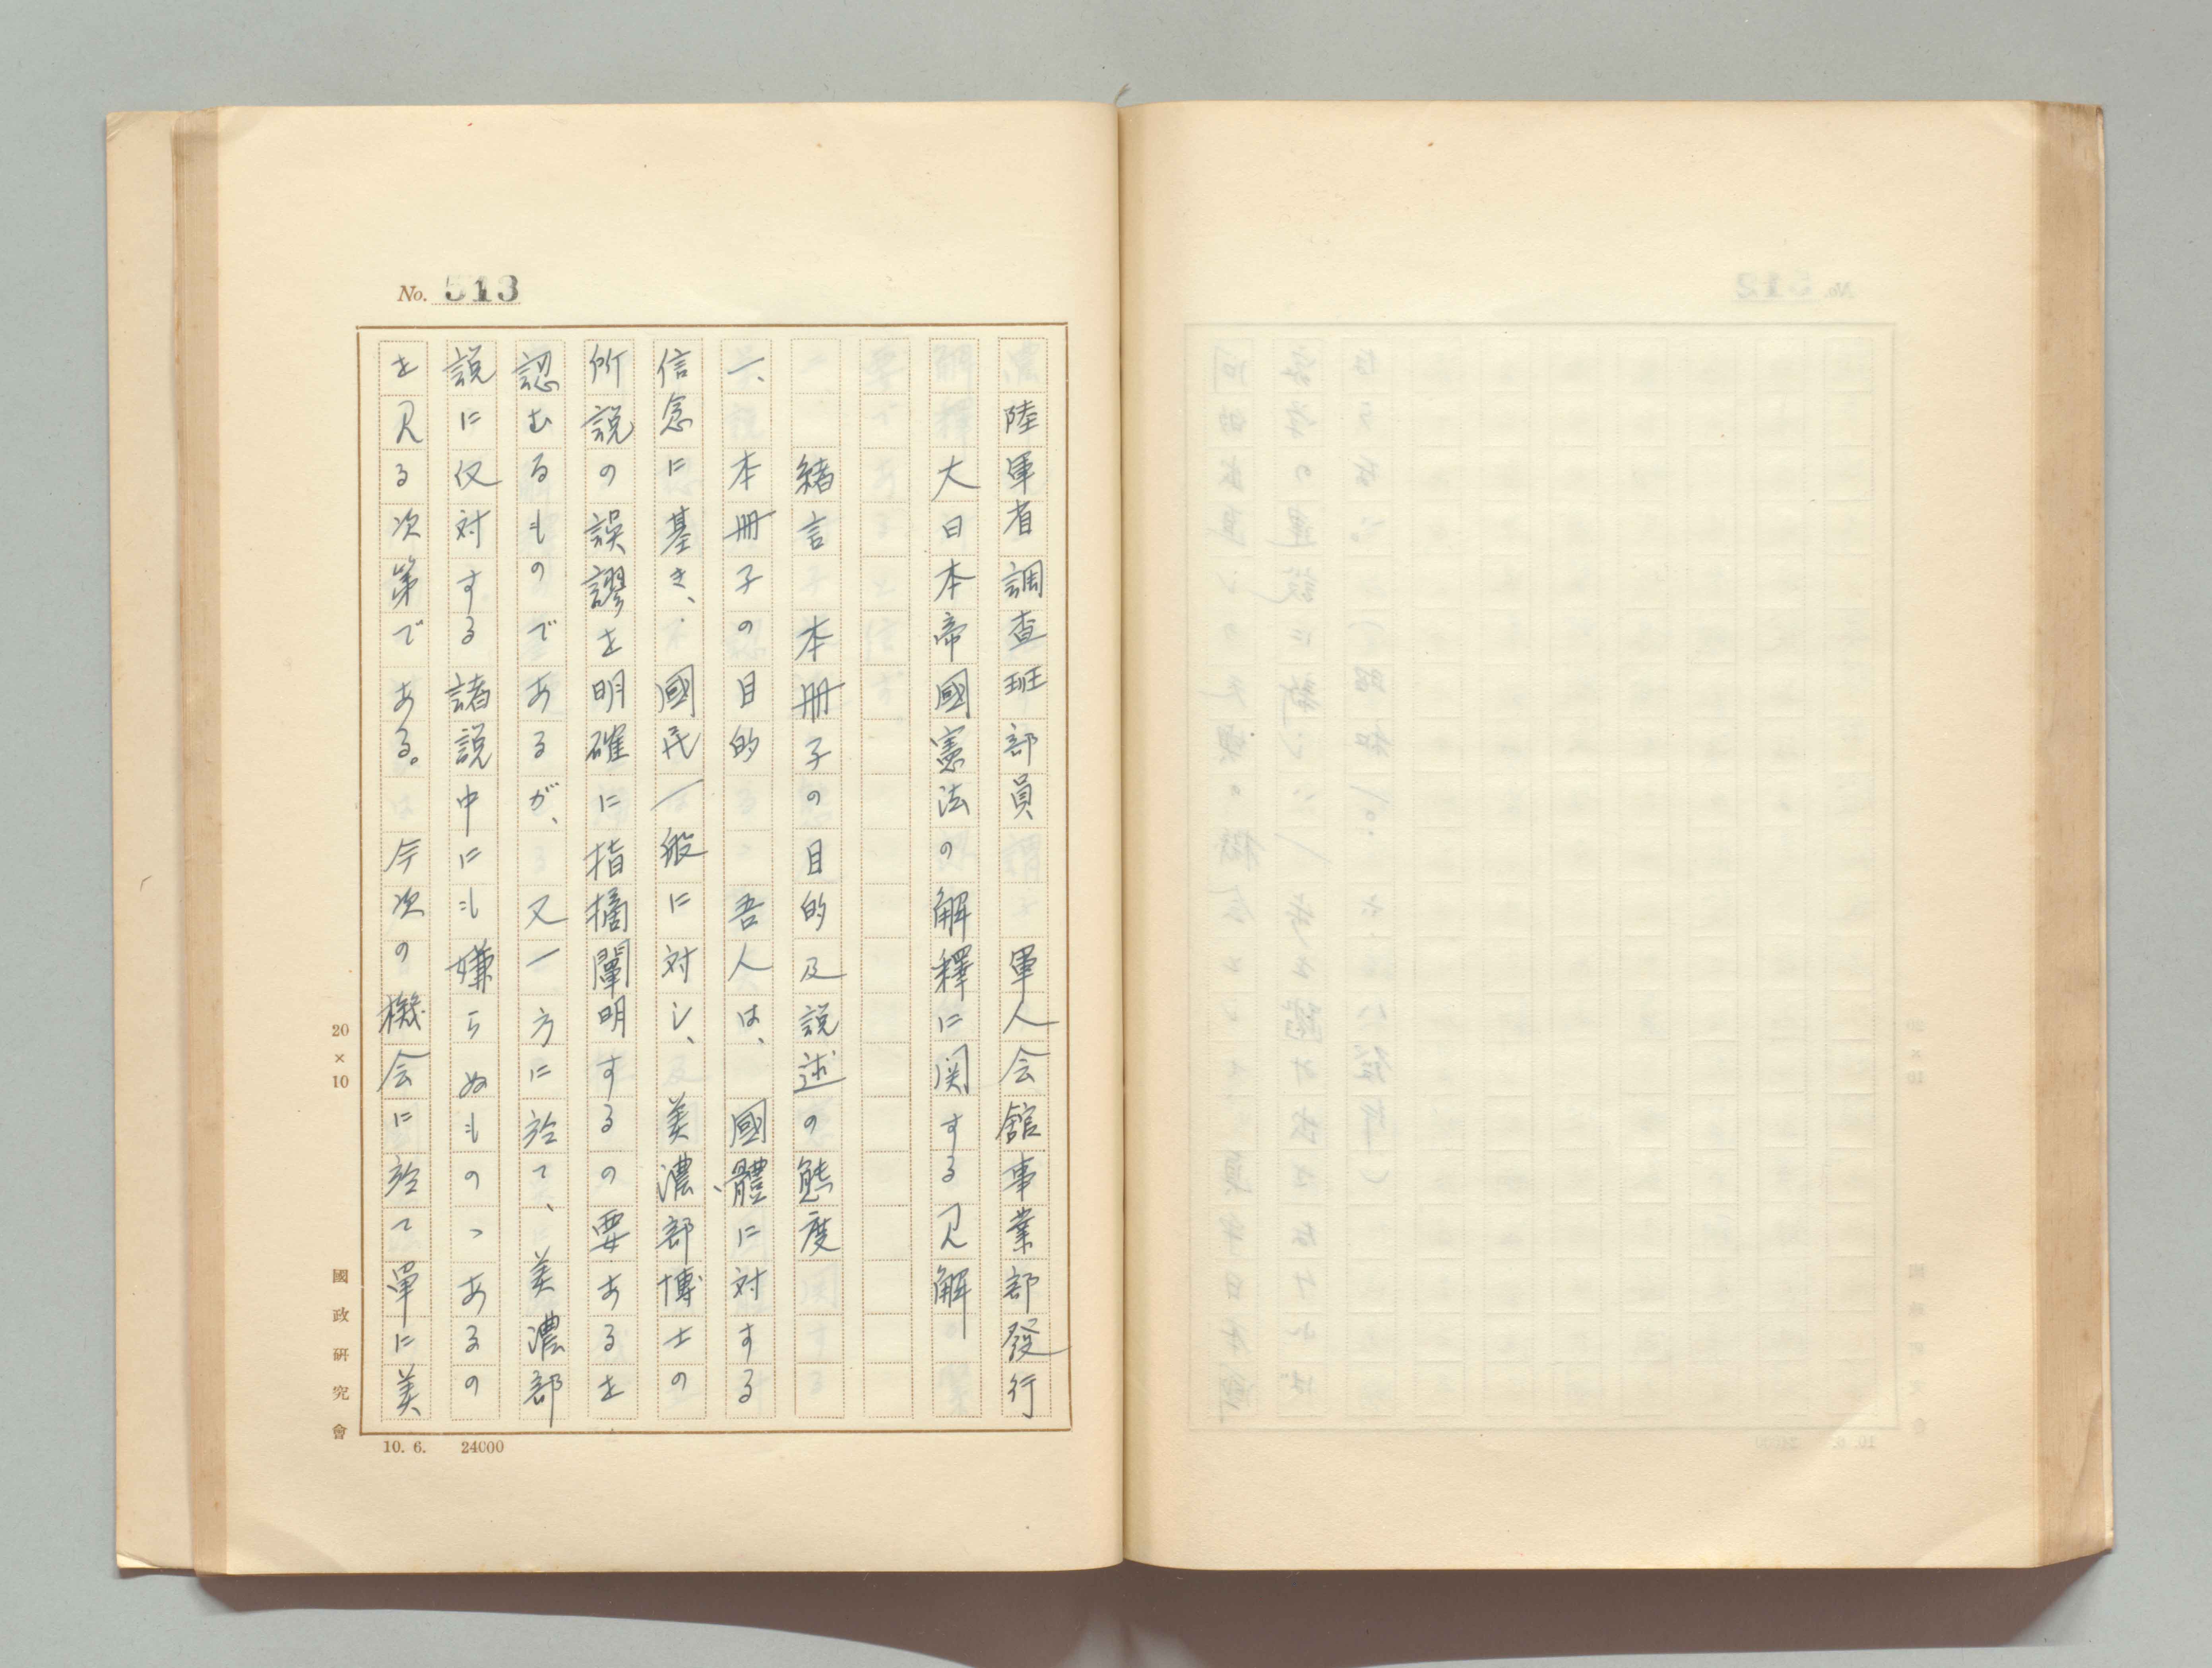 No. 513
陸軍省調査班部員　軍人会舘事業部發行
大日本帝國憲法の解釋に関する見解
緒言　本冊子の目的及説述の態度
一、本冊子の目的　吾人は、國體に対する
信念に基き、國民一般に対し、美濃部博士の
所説の誤謬を明確に指摘闡明するの要あるを
認むるものであるが、又一方に於て、美濃部
説に反対する諸説中にも嫌らぬものゝあるの
を見る次第である。今次の機会に於て單に美
20×10
國政研究會
10. 6.　24000